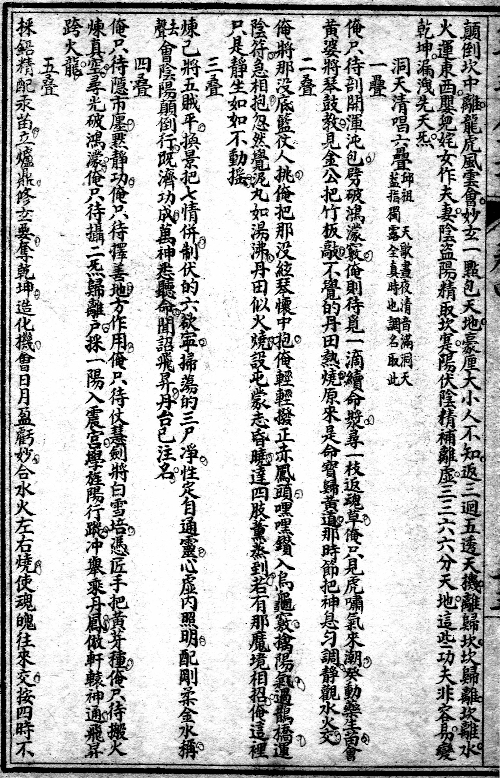 顛倒坎中離龍虎風雲會妙玄一點包天地毫厘大小人不知返三迴五透天機離歸坎坎歸離坎離水
火運東西嬰兒姹女作夫妻陰盜陽精取坎塞陽伏陰精補離虛三三六六分天地這些功夫非容易變
乾坤漏洩先天炁
洞天清唱六疊邱祖天歌晝夜清音滿洞天
蓋指獨露全真時也調名取此
一疊
俺只待剖開渾沌包劈破鴻濛竅俺則待覓一滴續命漿尋一枝返魂草俺只見虎嘯氣來潮癸動藥生苗會
黃婆將琴鼓教見金公把竹板敲不覺的丹田熱燒原來是命寶歸黃道那時節把神息勻調靜觀水火交
二疊
俺將那沒底籃仗人挑俺把那沒絃琴懷中抱俺輕輕撥正赤鳳頭哩哩鑽入烏龜竅擒陽氣過鵲橋運
陰符急相抱忽然覺泥丸如湯沸丹田似火燒設屯蒙志昏曉達四肢薰蒸到若有那魔境相招俺這裡
只是靜生如如不動搖
三疊
煉己將五賊平換景把七情併制伏的六欲寧掃蕩的三尸淨性定自通靈心虛內照明配剛柔金水稱
法會陰陽顛倒行既濟功成萬神悉聽命聞詔飛昇丹台已注名
四疊
俺只待隱市廛默靜功俺只待擇善地方作用俺只待仗慧劍將白雪培憑匠手把黃芽種俺只待搬火
煉真空尋光破鴻濛俺只待攝二炁歸離戶採一陽入震宮學旌陽行蹤冲舉乘丹鳳倣軒轅神通飛昇
跨火龍
五疊
採鉛精配汞苗立爐鼎修玄要奪乾坤造化機會日月盈虧妙合水火左右燒使魂魄往來交按四時不